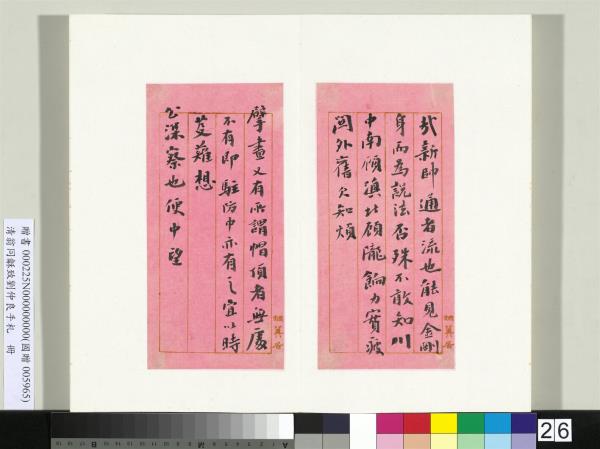 哉新帥通者流也能見金剛
身而為說法否殊不敢知川
中南顧滇北顧隴餉力實疲
閫外舊欠知煩
擘畫又有所謂帽頂者無處
不有即駐防中亦有之宜以時
芟薙想
公深察也便中望
贈書 000225N000000000(國贈 005965)
清翁同龢致劉仲良手札 冊
26